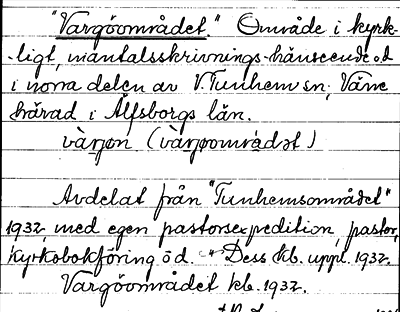 "Vargöområdet." Område i kyrk-
ligt, mantalsskrivnings-hänseende o d
i norra delen av V. Tunhem sn, Väne
härad i Älfsborgs län.
vàrjøn (vàrjøområdət)
Avdelat från "Tunhemsområdet"
1932 med egen pastorsexpedition, pastor,
kyrkobokföring o d. "Dess kb. uppl. 1932.
Vargöområdet kb. 1932.